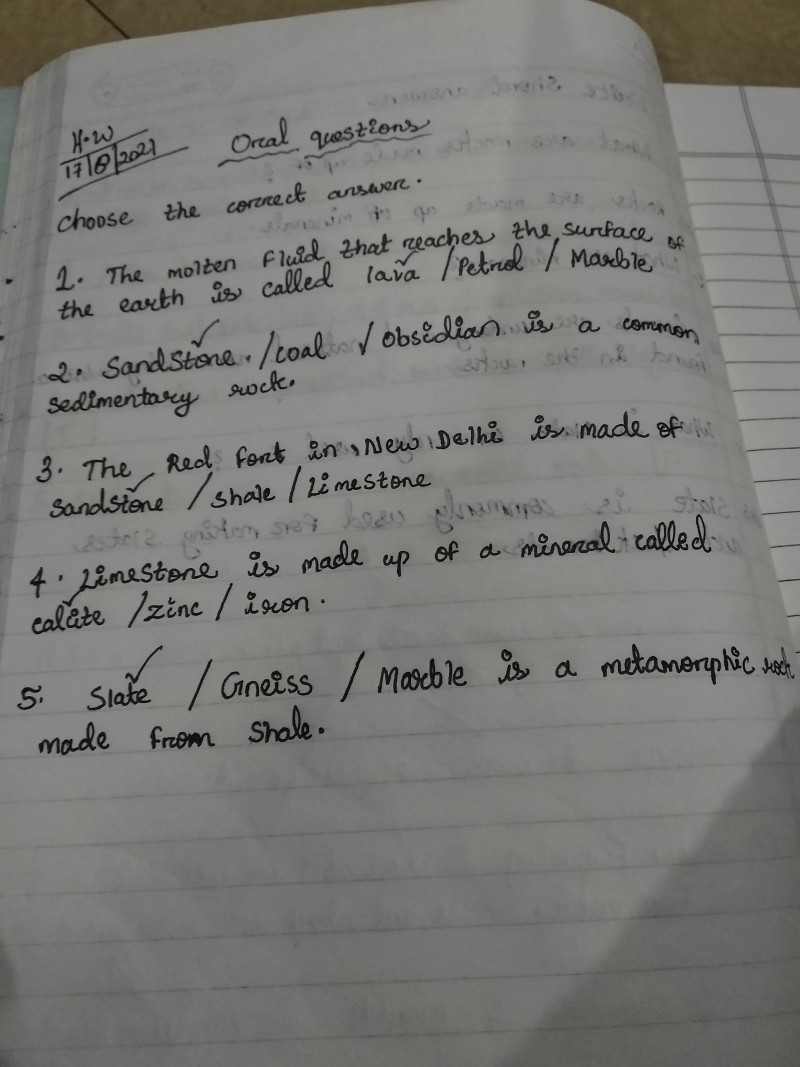 H.W
17/8/2021
Oral questions
choose the correct answer.
1. The molten fluid that reaches the surface of
the earth is called lava / Petrol / Marble
2. Sandstone. / coal / obsidian is a common
sedimentary rock.
3. The Red fort in New Delhi is made of
sandstone / shale / Limestone
4. Limestone is made up of a mineral called
calcite / zinc / iron.
5. Slate / Gneiss / Marble is a metamorphic rock
made from shale.